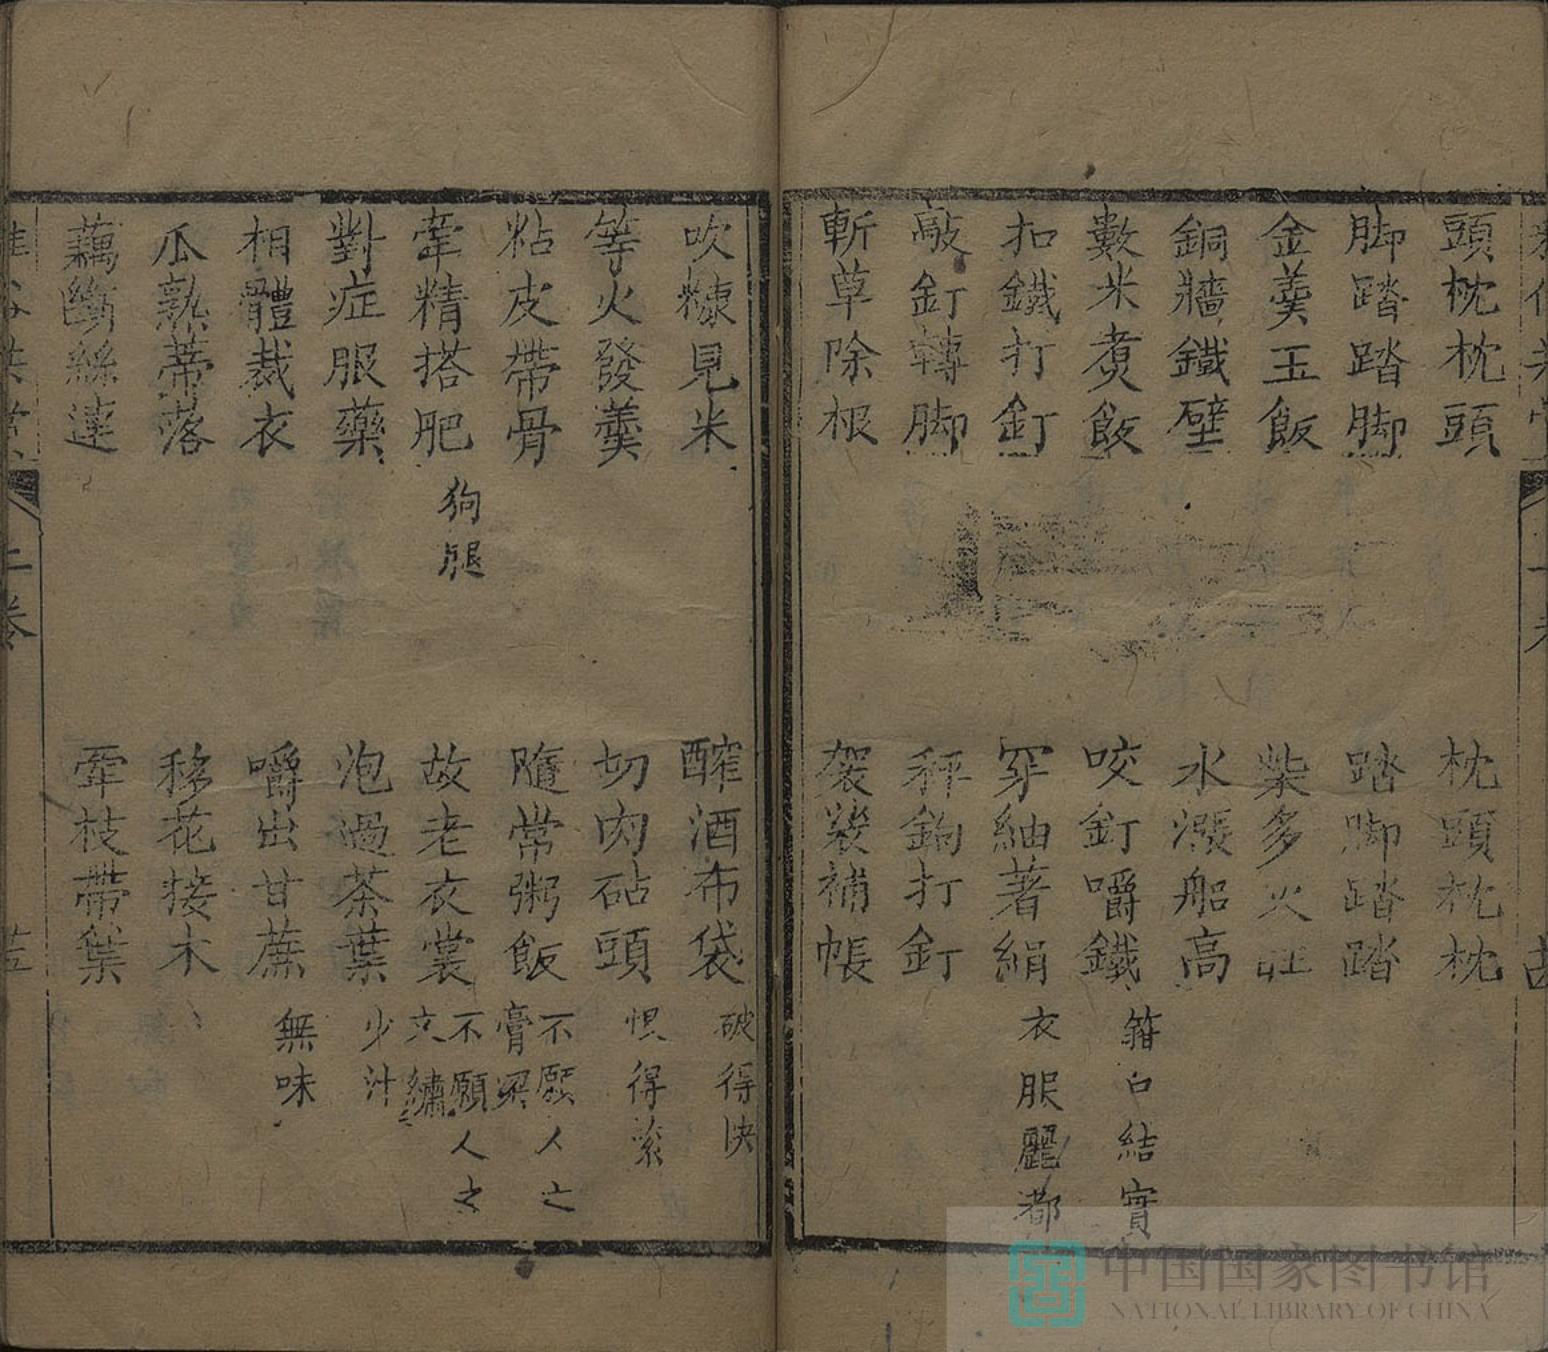 頭枕枕頭 枕頭枕枕
脚踏踏脚 踏脚踏踏
金羹玉飯 柴多火旺
銅牆鐵壁 水漲船高
數米煑飯 咬釘嚼鐵 箝口結實
扣鐵打釘 穿紬著絹 衣服麗都
敲釘轉脚 秤鈎打釘
斬草除根 袈裟補帳
吹糠見米 醡酒布袋 破得快
等火發羹 切肉砧頭 惧得紧
粘皮帶骨 隨常粥飯 不愿人之膏梁
牽精搭肥 狗腿 故老衣裳 不願人之文繡
對症服藥 泡過茶葉 少汁
相體裁衣 嚼出甘蔗 無味
瓜熟蒂落 移花接木
藕斷絲連 牽枝帶葉
上卷
中国国家图书馆
NATIONAL LIBRARY OF CHINA